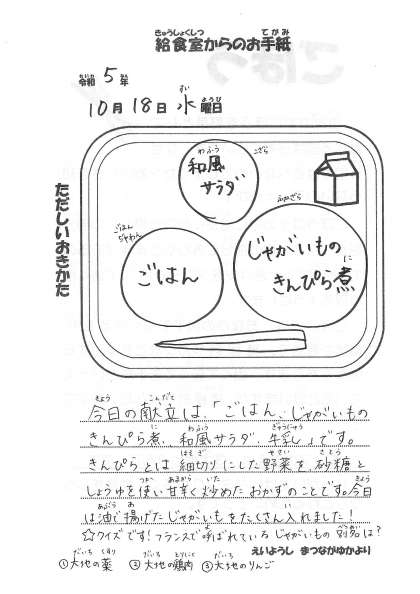 給食室からのお手紙
令和 5年
10月 18日 水曜日
ただしいおきかた
和風サラダ
こざら
ごはんぢゃわん
ごはん
ふかざら
じゃがいものきんぴら煮
今日の献立は、「ごはん、じゃがいもの
きんぴら煮、和風サラダ、牛乳」です。
きんぴらとは細切りにした野菜を砂糖と
しょうゆを使い甘辛く炒めたおかずのことです。今日
は油で揚げたじゃがいもをたくさん入れました！
☆クイズです！フランスで呼ばれているじゃがいもの別名は？
えいようし まつながゆかより
①大地の薬 ②大地の鶏肉 ③大地のりんご